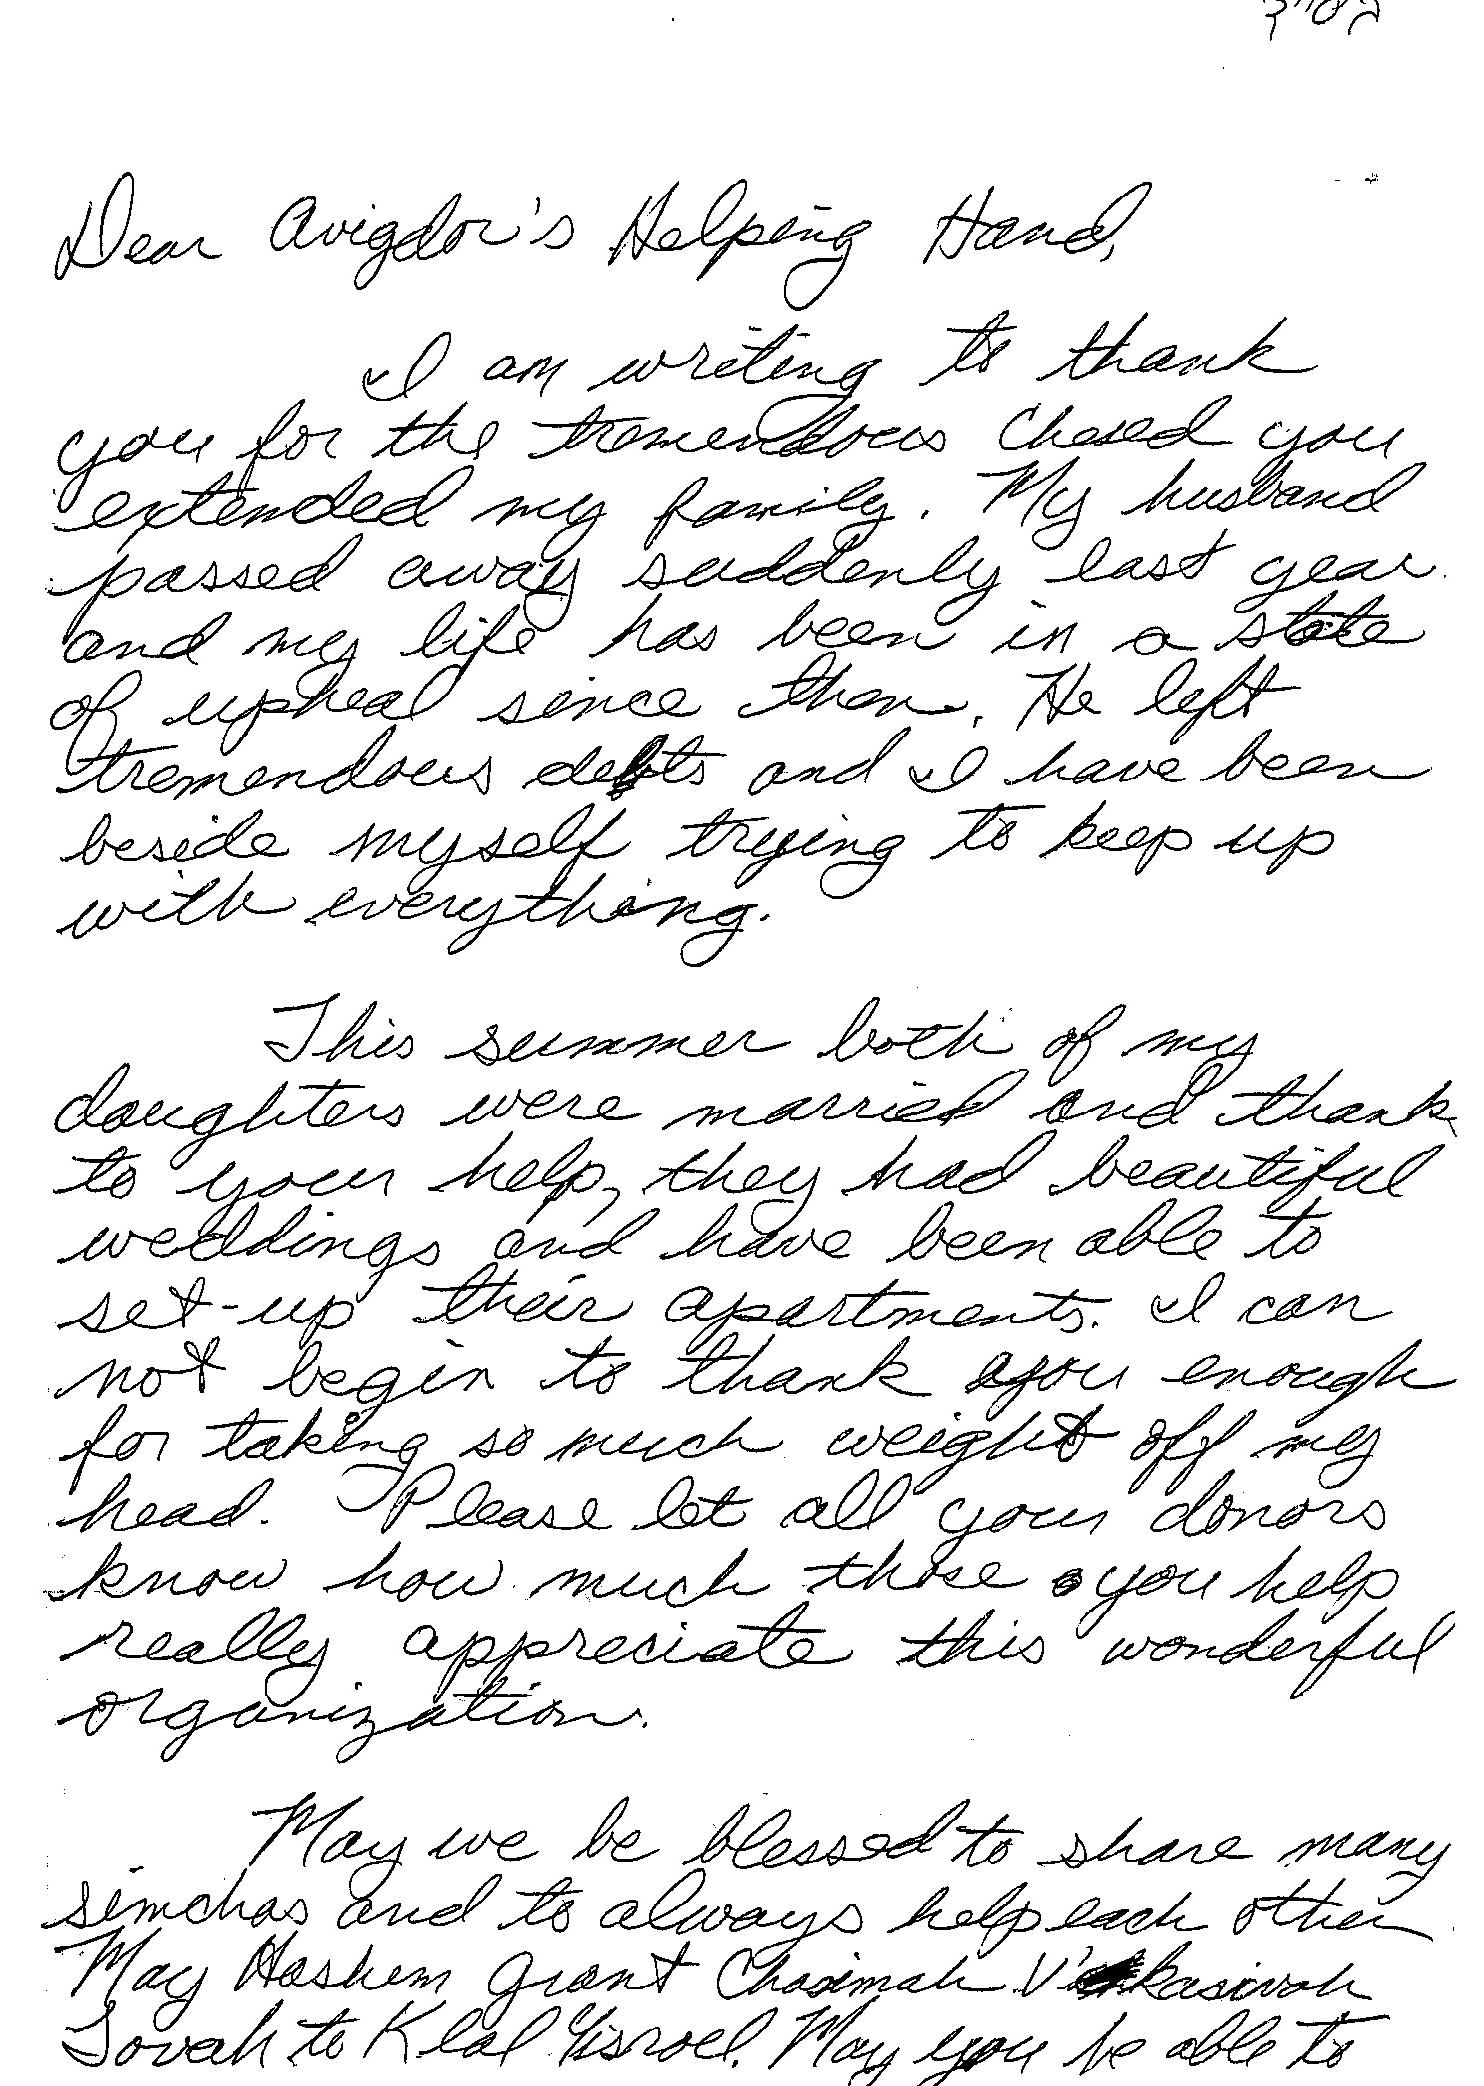 בס"ד
Dear Avigdor's Helping Hand,
I am writing to thank
you for the tremendous Chesed you
extended my family. My husband
passed away suddenly last year
and my life has been in a state
of upheal since then. He left
tremendous debts and I have been
beside myself trying to keep up
with everything.
This summer both of my
daughters were married and thank
to your help, they had beautiful
weddings and have been able to
set-up their apartments. I can
not begin to thank you enough
for taking so much weight off my
head. Please let all your donors
know how much those you help
really appreciate this wonderful
organization.
May we be blessed to share many
simchas and to always help each other
May Hashem grant Chasimah V'kasivah
Tovah to Klal Yisroel. May you be able to